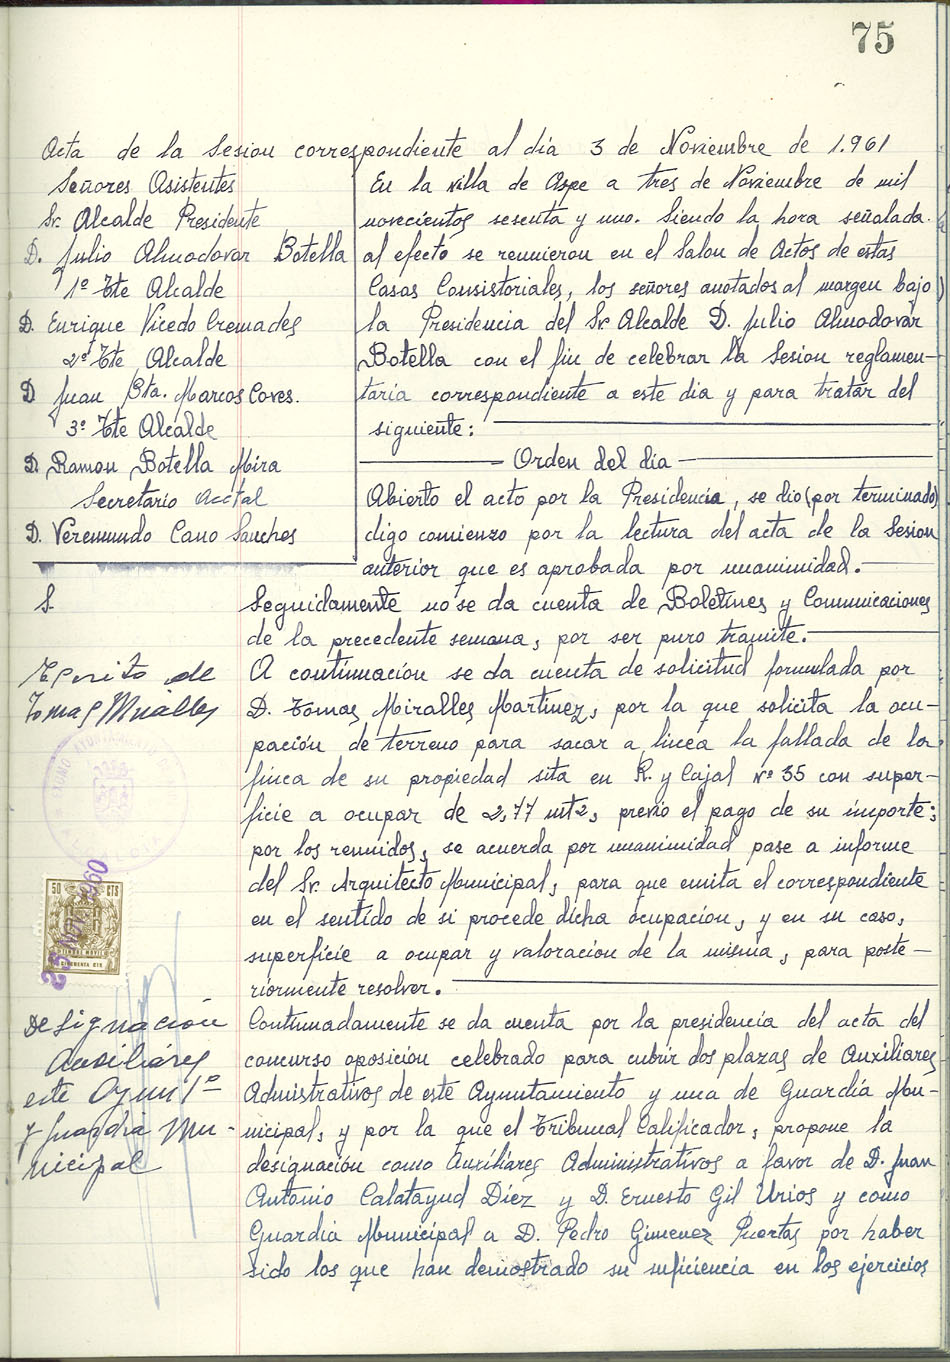 75
Acta de la Sesion correspondiente al día 3 de Noviembre de 1.961
Señores Asistentes
Sr. Alcalde Presidente
D. Julio Almodovar Botella
1º Tte Alcalde
D. Enrique Vicedo Cremades
2º Tte Alcalde
D Juan Bta. Marcos Coves.
3º Tte Alcalde
D. Ramon Botella Mira
Secretario Acctal
D. Veremundo Cano Sanches
En la villa de Aspe a tres de Noviembre de mil
novecientos sesenta y uno. Siendo la hora señalada
al efecto se reunieron en el Salon de Actos de estas
Casas Consistoriales, los señores anotados al margen bajo
la Presidencia del Sr Alcalde D. Julio Almodovar
Botella con el fin de celebrar la Sesion reglamen-
taria correspondiente a este dia y para tratar del
siguiente:
Orden del dia
Abierto el acto por la Presidencia, se dio (por terminado)
digo comienzo por la lectura del acta de la Sesion
anterior que es aprobada por unaminidad.
S.
Seguidamente no se da cuenta de Boletines y Comunicaciones
de la precedente semana, por ser puro tramite.
Escrito de
Tomas Miralles
A continuación se da cuenta de solicitud formulada por
D. Tomas Miralles Martinez, por la que solicita la ocu-
pación de terreno para sacar a linea la fallada de la
finca de su propiedad sita en R. y Cajal nº 35 con super-
ficie a ocupar de 2,77 mt2, previo el pago de su importe;
por los reunidos, se acuerda por unanimidad pase a informe
del Sr. Arquitecto Municipal, para que emita el correspondiente
en el sentido de si procede dicha ocupación, y en su caso,
superficie a ocupar y valoración de la misma, para poste-
riormente resolver.
AYUNTAMIENTO DE
ALCALDIA
50 CTS
25 NOV 1960
TIMBRE MOVIL
CINCUENTA CTS
Designación
Auxiliáres
este Ayunt°
y guardia Mu-
nicipal
Continuadamente se da cuenta por la presidencia del acta del
concurso oposición celebrado para cubrir dos plazas de Auxiliares
Admistrativos de este Ayuntamiento y una de Guardia Mu-
nicipal, y por la que el Tribunal Calificador, propone la
designación como Auxiliares Administrativos a favor de D. Juan
Antonio Calatayud Díez y D. Ernesto Gil Urios y como
Guardia Municipal a D. Pedro Gimenez Puertas por haber
sido los que han demostrado su suficiencia en los ejercicios